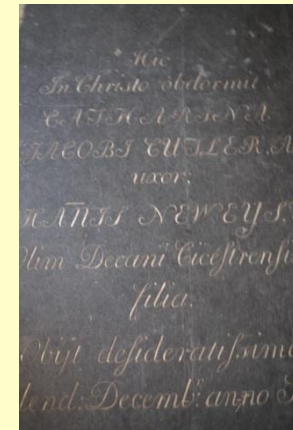 Hic
In Christo obdormit
CATHARINA
JACOBI CUTLER, A
uxor;
HAN̅IS NEWEYS,
Olim Decani Cicestrensis
filia.
Obijt desideratissima
Decembr: anno